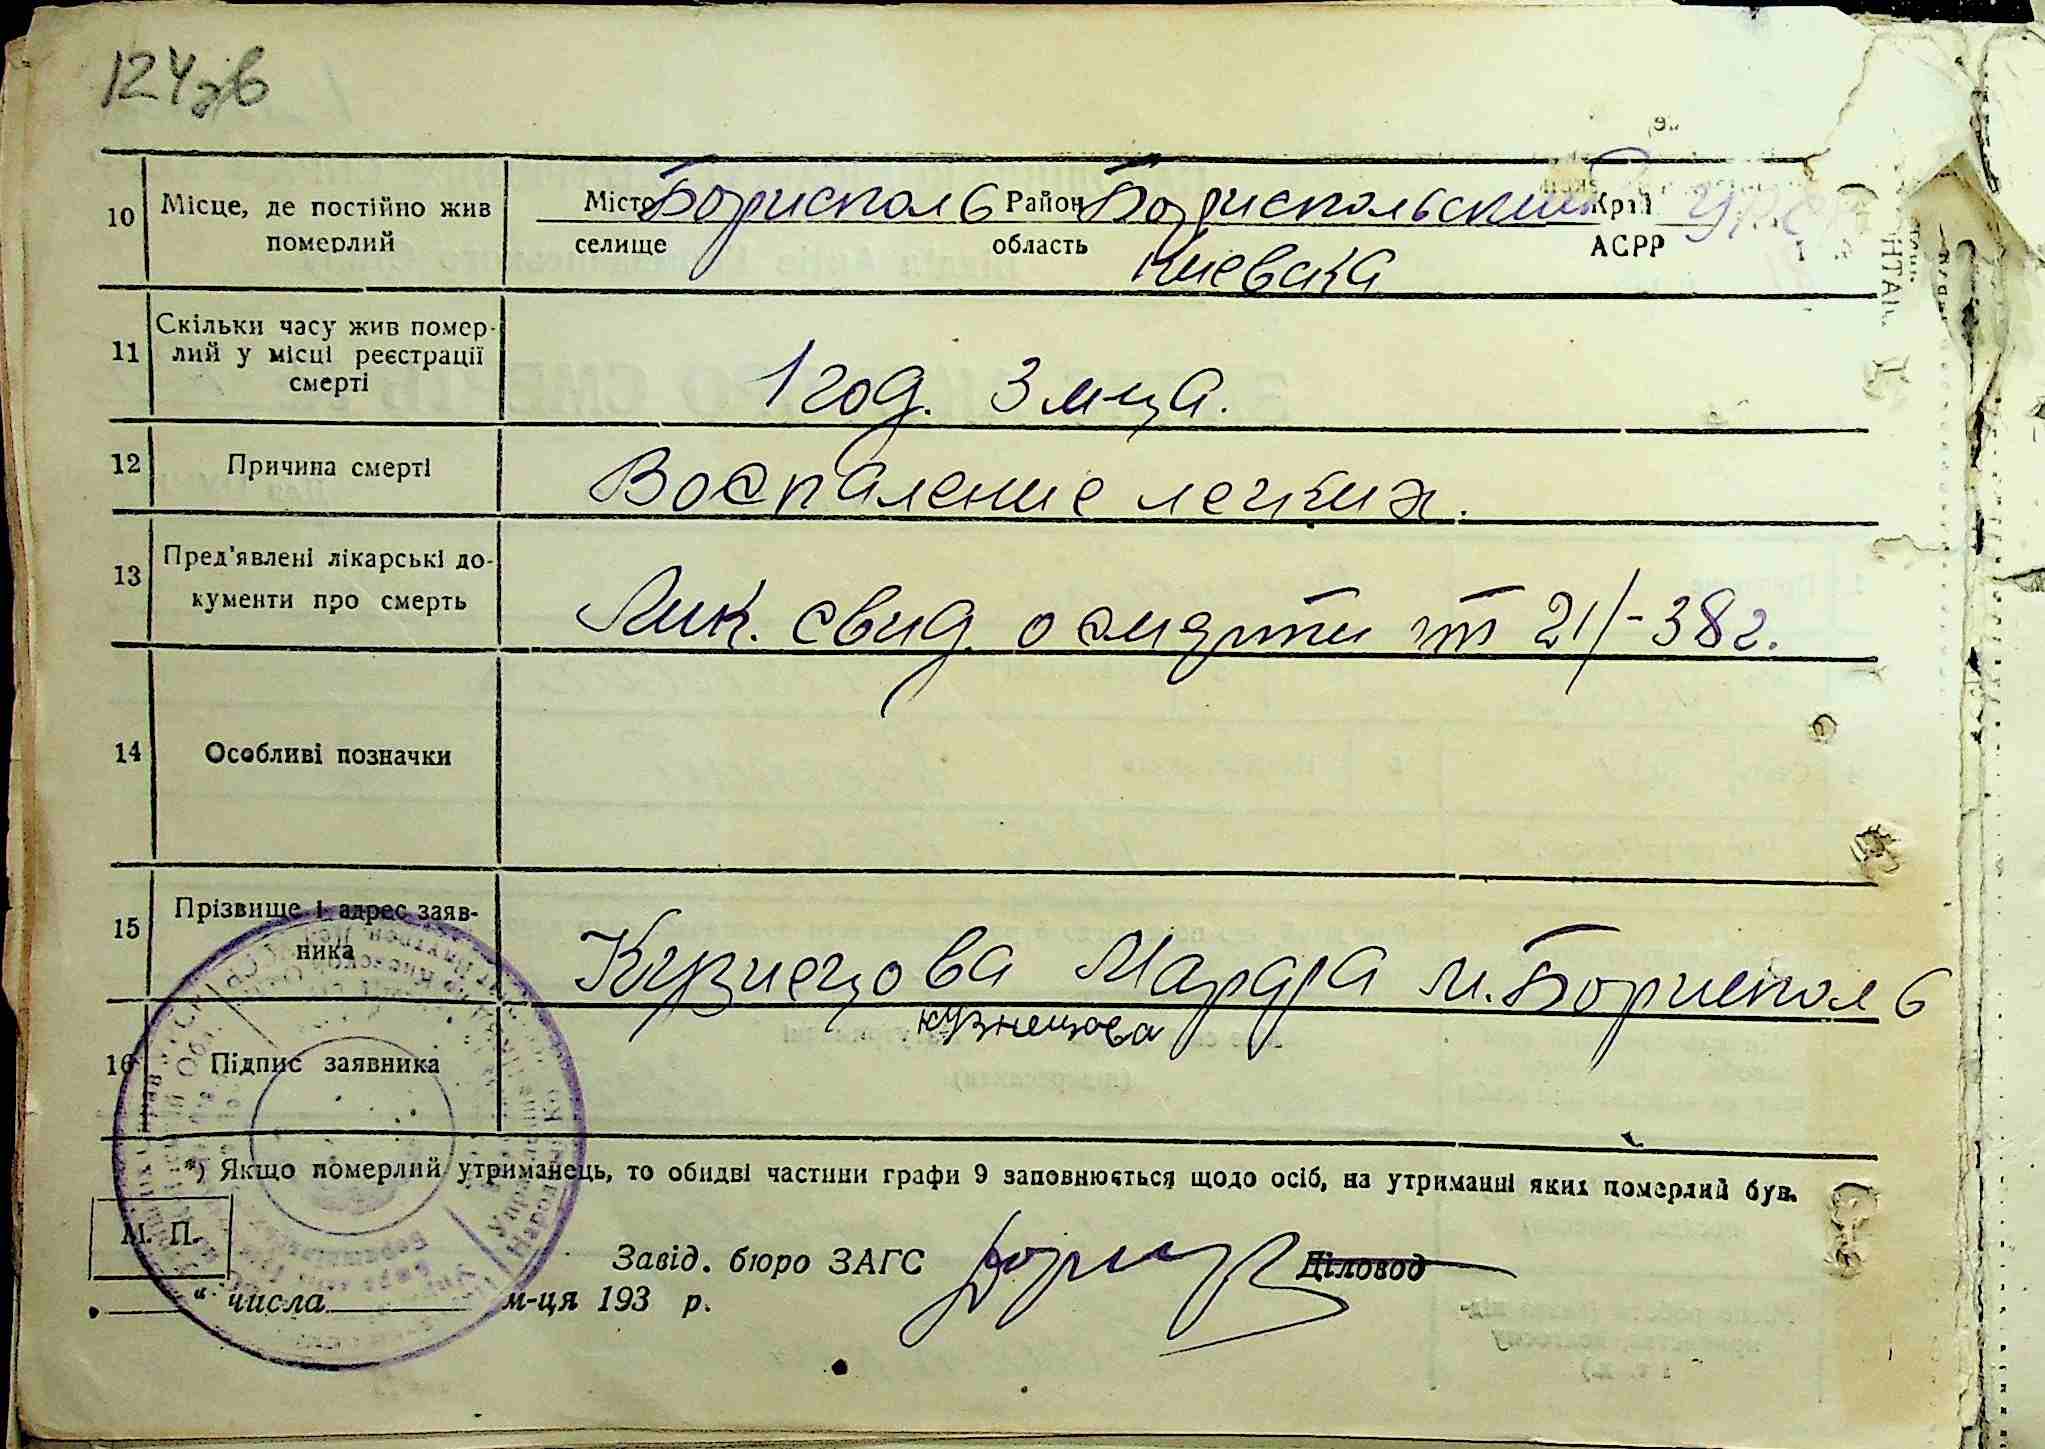 124зв
10 Місце, де постійно жив Місто Борисполь Район Бориспольский Край УРСР
померлий селище область Киевска АСРР
11 Скільки часу жив помер-
лий у місці реєстрації
смерті
1 год. 3 м-ца.
12 Причина смерті Воспаление легких.
13 Пред'явлені лікарські до-
кументи про смерть
Лик. свид. о смерти от 21/-38г.
14 Особливі позначки
15 Прізвище і адрес заяв-
ника
Кузнецова м. Борисполь
кузнецова
16 Підпис заявника
*) Якщо померлий утриманець, то обидві частини графи 9 заповнюється щодо осіб, на утриманні яких померлий був.
М. П.
Завід. бюро ЗАГС Діловод
" числа м-ця 193 р.